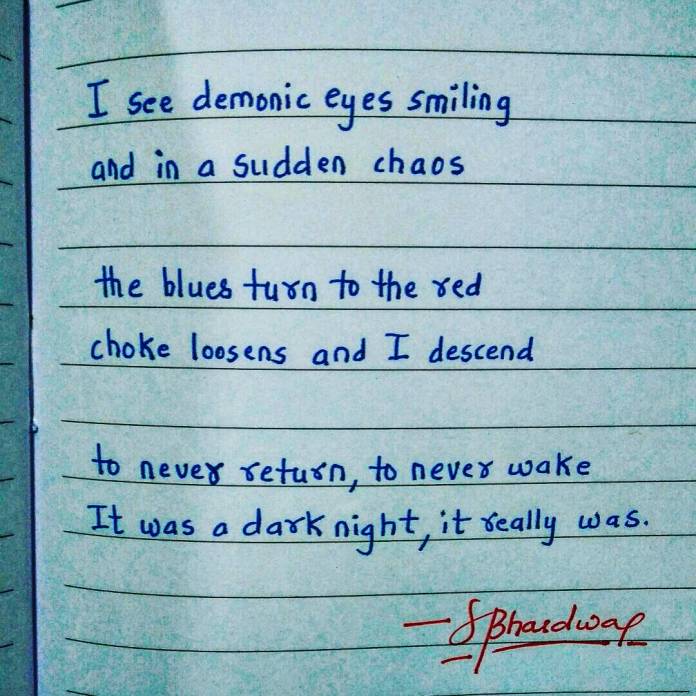 I see demonic eyes smiling
and in a sudden chaos
the blues turn to the red
choke loosens and I descend
to never return, to never wake
It was a dark night, it really was.
— SBhardwaj